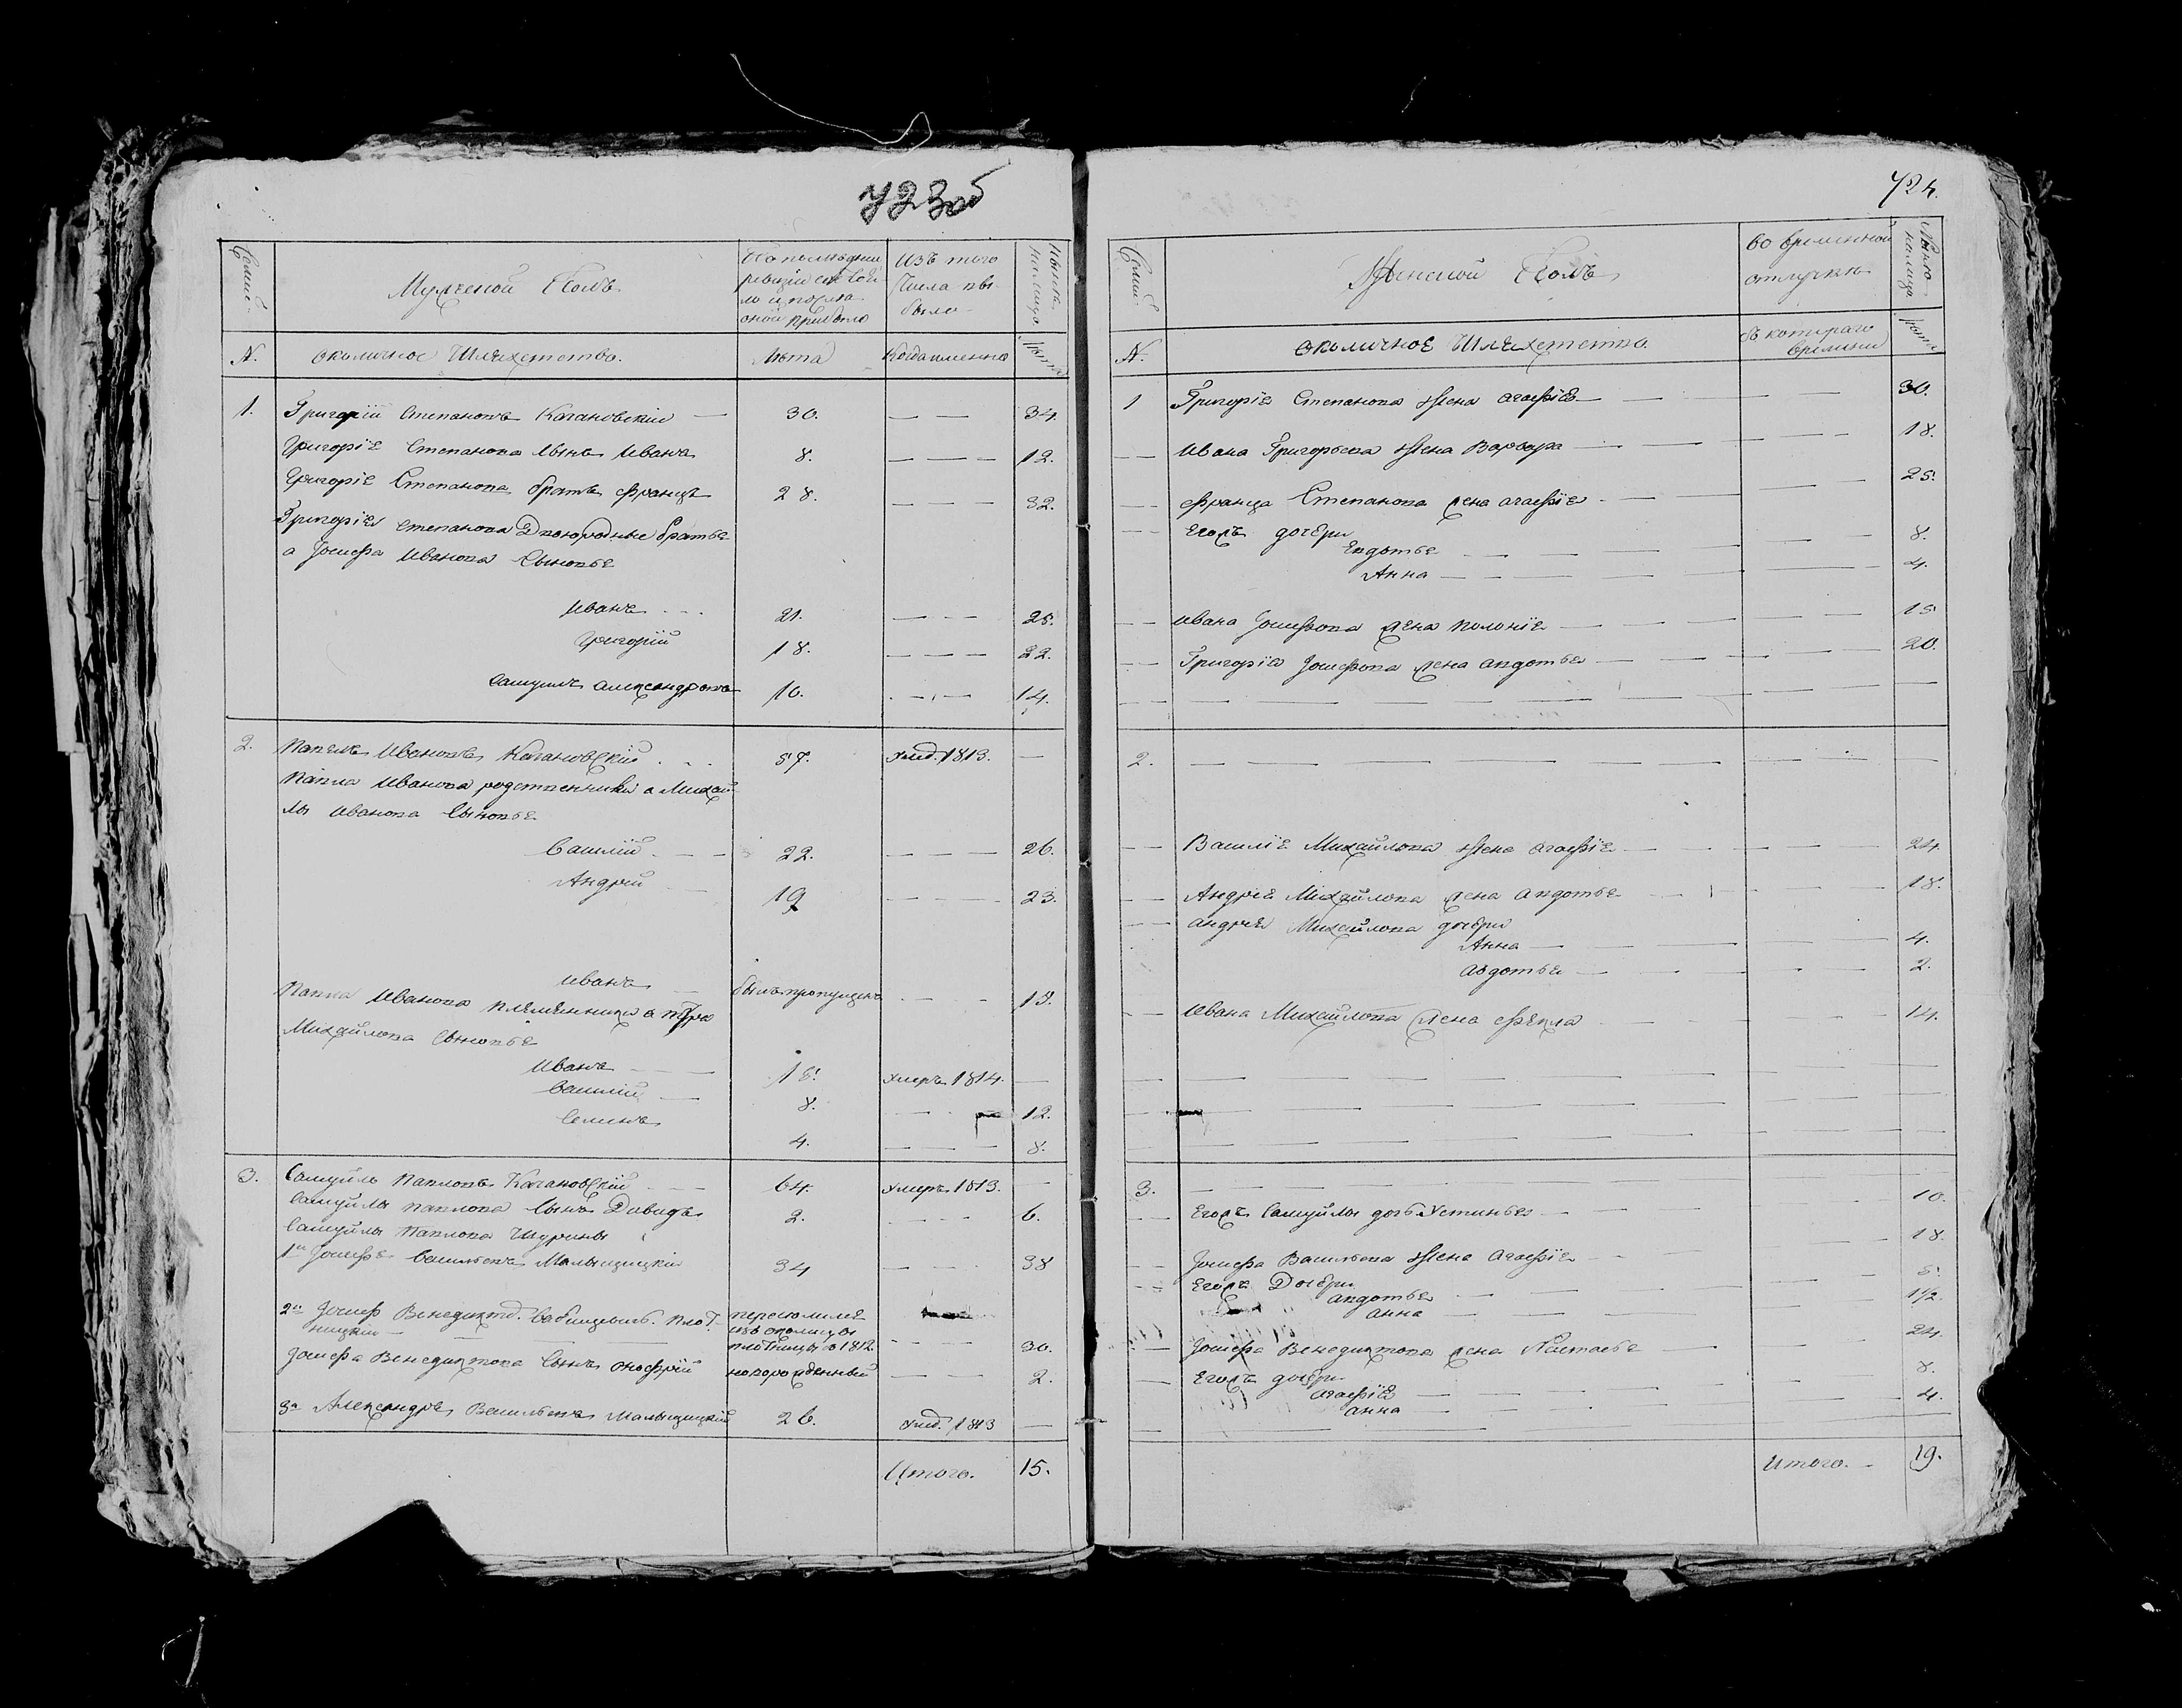 723об
Семьи
Мужеской Полъ
По последней
ревизіи состоя-
ло и после
оной прибыло
Изъ того
Числа вы-
было
Ныне
на лицо
N.
околичное Шляхетство.
Лета
Когда именно
лета
1. Григорій Степановъ Качановскій — 30. — — 34.
Григорія Степанова сынъ Иванъ 8. — — — 12.
Григорія Степанова братъ Францъ 28. — — — 32.
Григорія Степанова Двоюродные братья
а Іосифа Иванова Сыновья
Иванъ 21. — — — 25.
Григорій 18. — — — 22.
Самуилъ Александровъ 10. — — 14.
2. Павелъ Ивановъ Качановскій 57. 1813. —
Павла Иванова родственники а Михай-
лы Иванова Сыновья
Василій — — 22. — — — 26.
Андрей — 19 — — — 23.
Иванъ — былъ пропущенъ — — 15.
Павла Иванова племянники а Петра
Михайлова Сыновья
Иванъ — — 15. умеръ 1814. —
Василій — 8. — — 12.
Семенъ 4. — — — 8.
3. Самуйль Павловъ Качановскій — — 64. умеръ 1813. —
Самуйлы Павлова Сынъ Давидъ 2. — — — 6.
Самуйлы Павлова Шурины
1й Іосифъ Васильевъ Малыщицкій 34 — — 38
2й Іосиф Венедиктов. Бабицевичъ. Плот-
ницкій — переселился
изъ околицы
Плотницы в 1812 — — 30.
Іосифа Венедиктова Сынъ Онофрій новорожденный — — 2.
3й Александръ Васильевъ Малыщицкій 26. 1813 —
Итого. 15.
724.
Семьи
Женской Полъ
во временной
отлучке
Ныне
на лицо
N.
околичное Шляхетство
съ котораго
времени
лета
1 Григорія Степанова жена Агафія — — — 30.
— — Ивана Григорьева жена Варвара — — — 18.
— — Франца Степанова жена Агафія — — — 25.
— — Его жъ дочери
Евдотья — — — 8.
Анна — — — 4.
— — Ивана Іосифова жена Полонія — — — 15
— — Григорія Іосифова жена Авдотья — — — 20.
2. — — —
— — Василія Михайлова жена Агафія — — — 24.
— — Андрея Михайлова жена Авдотья — — — 18.
— — Андрея Михайлова дочери
Анна — — — 4.
Авдотья — — — 2.
— — Ивана Михайлова жена Фекла — — — 14.
3. — — —
— — Его жъ Самуйлы дочь Устинья — — 10.
— — Іосифа Васильева жена Агафія — — — 18.
— — Его жъ Дочери
Авдотья — — — 5.
Анна — — — 1½.
— — Іосифа Венедиктова жена Настасья — — 24.
— — Его жъ дочери
Агафія — — — 8.
Анна — — — 4.
Итого. — 19.